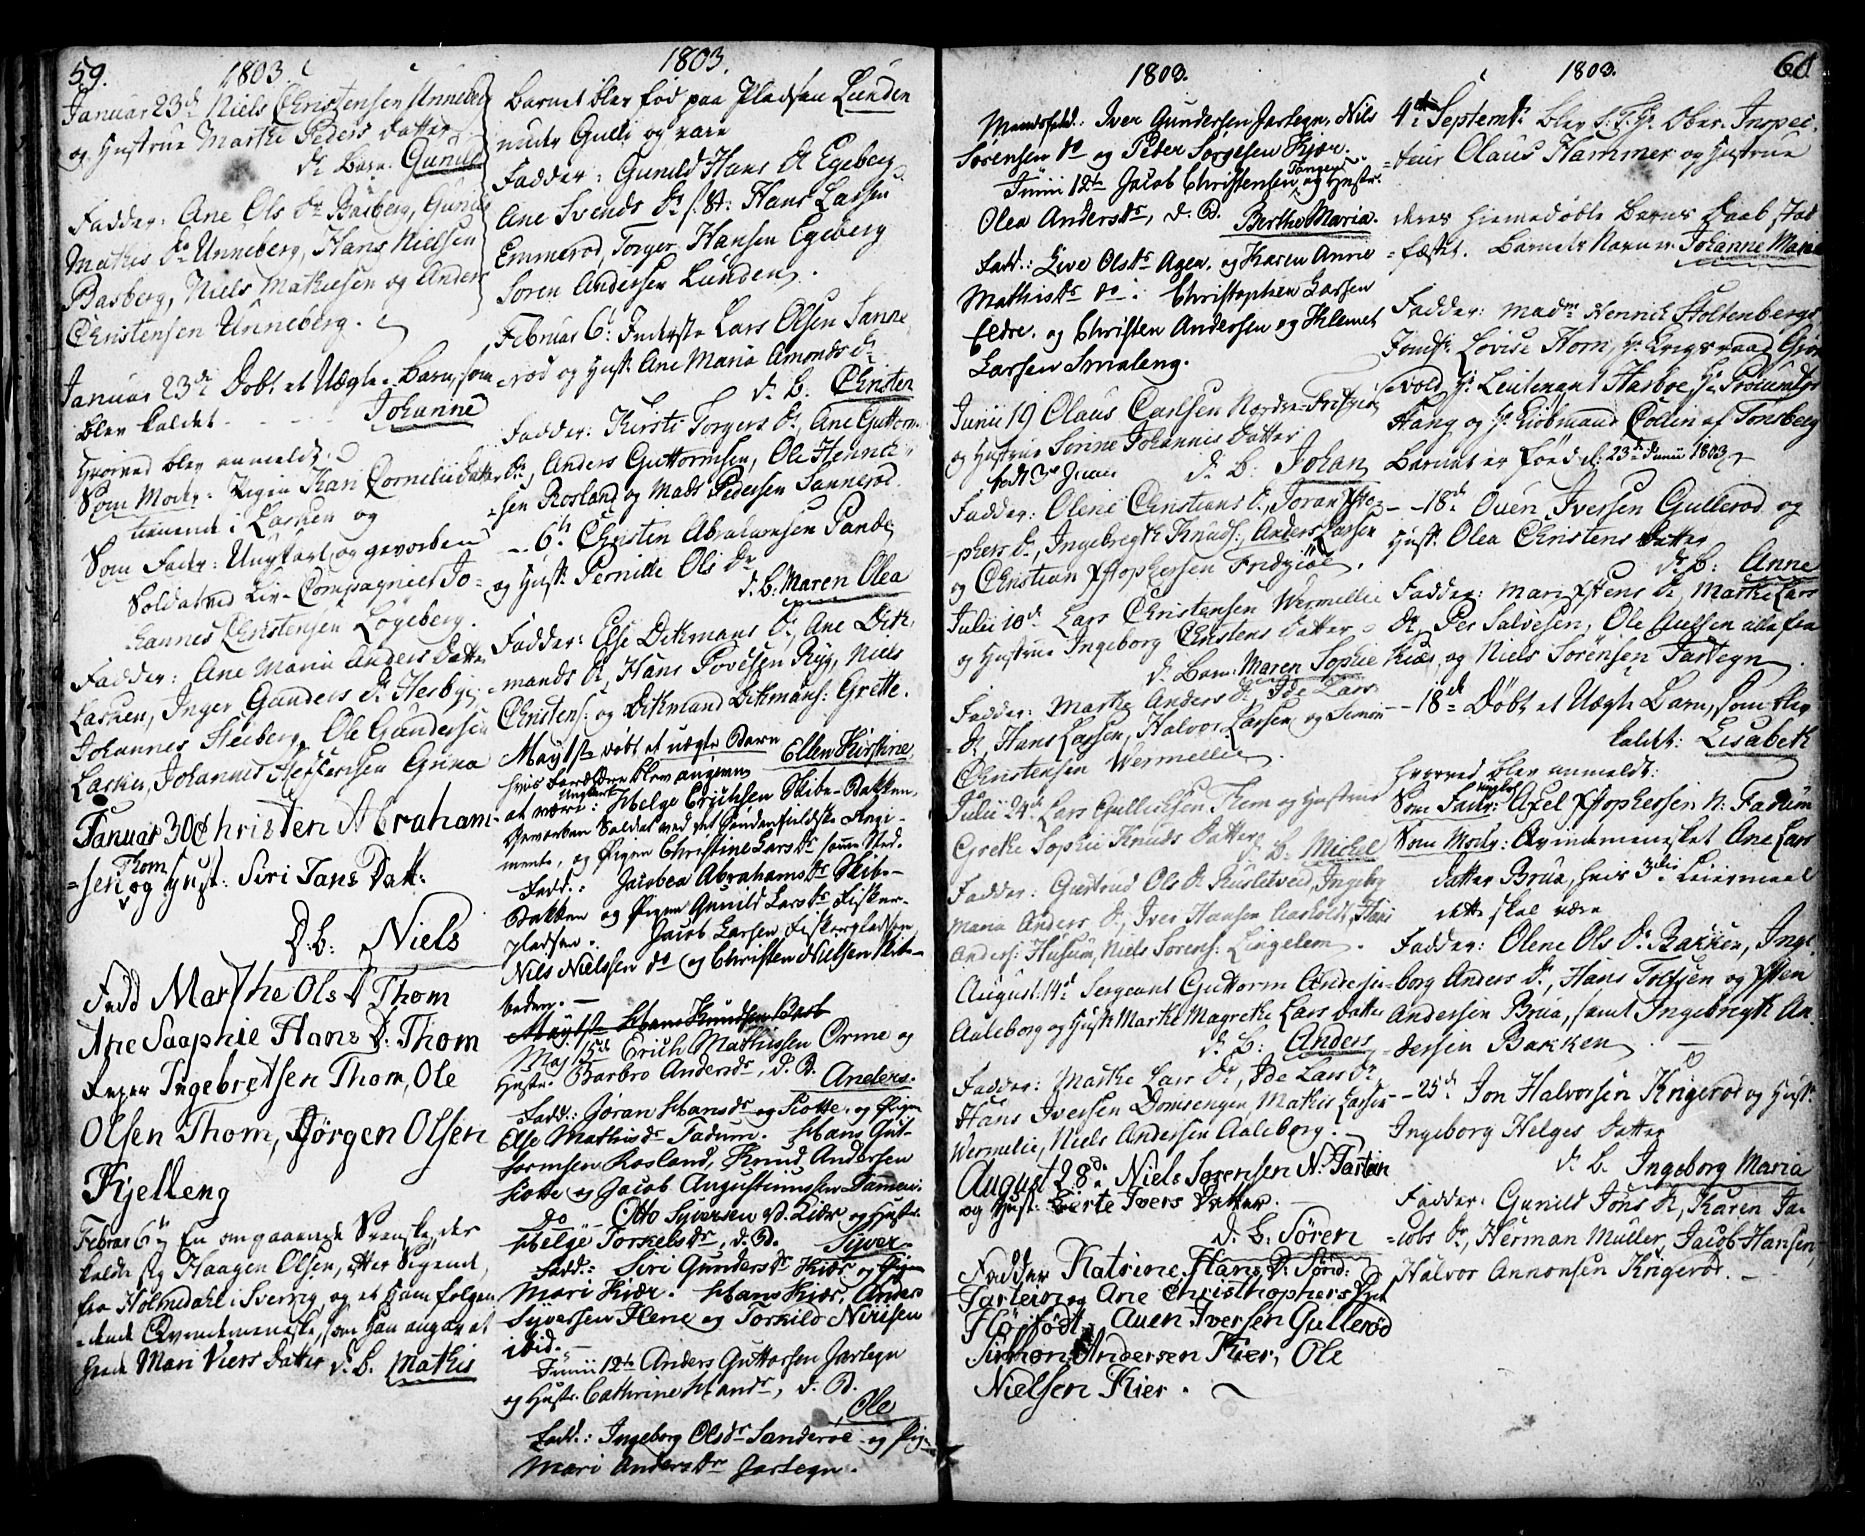 59.
1803.
Januar 23d Niels Christensen Unneberg
og Hustrue Marthe Peders Datter
D. Barn: Gunild
Fadder: Ane Ols Dr Basberg, Gunild
Mathis Dr Unneberg, Hans Nielsen
Basberg, Niels Mathiesen og Anders
Christensen Unneberg.
Januar 23de Døbt et Uægte Barn, som
blev kaldet Johanne
Hvorved blev anmeldt:
Som Moder: Pigen Kari Cornelii Datter
tienende i Lasken og
Som Fader: Ungkarl og gevorben
Soldat ved Liv-Compagniet Jo-
hannes Christensen Løgeberg.
Fadder: Ane Maria Anders Datter
Lasken, Inger Gunders Dr Hesbye,
Johannes Heiberg, Ole Gundersen
Lasken, Johannes Steffensen Grina
Januar 30 Christen Abraham-
sen Thom og Hust: Siri Jans Datt:
D: b: Niels
Fadd Marthe Ols D Thom
Ane Saaphie Hans D: Thom
Ingebretsen Thom, Ole
Olsen Thom, Jørgen Olsen
Kjelleng
Februar 6te En omgaaende Svenske, der
kaldte sig Haagen Olsen, efter Sigende
fra Holmedahl i Sverrig, og et ham følgen-
dende Qvindemenneske, som han angav at
hede Mari Niers Datter D. b. Mathis
1803.
Barnet blev fød paa Pladsen Lunden
under Gulli og vare
Fadder: Gunild Hans Dr Egeberg
Ane Svends Dr s. St: Hans Larsen
Emmerød, Torger Hansen Egeberg
Soren Andersen Lunden.
Februar 6: Inderste Lars Olsen Sanne-
rød og Hust: Ane Maria Amonds Dr
D. b. Christen
Fadder: Kirsti Torgers Dr, Ane Guttorms
Dr, Anders Guttormsen, Ole Henrich-
sen Rosland og Mads Pedersen Sannerød.
- - 6te Christen Abrahamsen Pande
og Hust: Pernille Ols Dr
d. b: Maren Olea
Fadder: Else Ditmans Dr, Ane Dit-
mands Dr, Hans Povelsen Rye, Niels
Christens: og Ditmand Ditmans: Grette.
May 1ste døbt et uægte Barn Ellen Kirstine
hvis Forældre blev angiven
at være: Ungkarl Helge Erichsen Skibe-Bakken,
Gevorben Soldat ved det Søndenfieldske Regi-
mente, og Pigen Christine Lars Dr samme Sted.
Fadd.: Jacobea Abrahams Dr Skibe-
Bakken og Pigen Gunild Lars Dr Fisker-
pladsen. Jacob Larsen Fiskerpladsen,
Nils Nielssen do og Christen Nielsen Skibe-
beden.
May 1ste Hans Knudsen Barb
May 15d Erich Mathissen Orme og
Hustr. Barbro Andersdr, D. B. Anders.
Fadd: Jøran Hansdr og Siotte, og Pigen
Else Mathisdr Fadum. Hans Gut-
tormsen Rosland, Knud Andersen
Siotte og Jacob Augustinussen
do Otto Syversen Kiær og Hustr.
Helge Torkelsdr, D. B. Syver
Fadd.: Siri Gundersdr Kiær og Pigen
Mari Kiær. Hans Kiær, Anders
Syversen Hene og Torkild Nirisen
ibid.
Junii 12te Anders Guttorsen Jarlegn
og Hustr. Cathrine Handr, D. B.
Ole
Fadd.: Ingeborg Olsdr Sanderøe og Pig.
Mari Andersdr Jarlegn.
1803.
Mandfold.: Iver Gundersen Jarlegn, Nils
Sørensen do og Peder Sørgesen Kjær.
Junii 12te Jacob Christensen Tangen og Hustr.
Olea Andersdr, D. B. Berthe Maria.
Fadd.: Live Olsdr Agen, og Karen Anne
Mathisdr do. Christopher Larsen
Eldre, og Christen Andersen og Klemet
Larsen Smaleng.
Junii 19 Olaus Carlsen Nordre-Fridgior
og Hustrue Sonne Johannis Datter
født 3de Juni D. b: Johan
Fadder: Olene Christians Dr, Joran Xsto-
phers Dr, Ingebregth Knuds: Anders Larsen
og Christian Xstophersen Fridgiøl.
Julii 10de Lars Christensen Wermelie
og Hustrue Ingeborg Christens Datter
D. Barn: Maren Sophie
Fadder: Marthe Anders Dr, Ide Lars
Dr, Hans Larsen, Halvor Larsen og Simon
Christensen Wermelie.
Julii 24de Lars Gullichsen Thom og Hustrue
Grethe Sophie Knuds Datter
D. B: Michel
Fadder: Gurtrud Ols Dr Rusletveid, Ingeb:
Maria Anders Dr, Iver Hansen Aasholdt, Hans
Anders: Husum, Niels Sørens: Lingelem.
August: 14de Sergeant Guttorm Andersen
Aaleborg og Hust: Marthe Magrethe Lars Datter
D. b: Anders
Fadder: Marthe Lars Dr, Ide Lars Dr
Hans Iversen Domsengen, Mathis Larsen
Wermelie, Niels Andersen Aaleborg.
August 28de Niels Sorensen N. Jartein
og Hust: Berte Ivers Datter
D. b: Sören
Fadder Katrine Hans D:
Jartein og Ane Christhophers D
Auen Iversen Gullerød
Simon Andersen Kier, Ole
Nielsen Kier.
1803.
60
4de Septembr. blev S. T. Hr. Ober-Inspec-
teur Olaus Hammer og Hustrue
deres hjemedøbte Barns Daab stad-
fæstet. Barnets Navn er Johanne Marie
Fadder: Madme Henrich Stoltenbergs
Jomf: Lovise Horn, Hr. Krigsraad Grøn-
vold, Hr. Leutenant Hasboe, Hr. Procurator
Stang og Hr. Kiøbmand Collen af Tonsberg
Barnet er föed d: 23de Junii 1803
- - 18de Ouen Iversen Gullerød og
Hust: Olea Christens Datter
D. b: Anne
Fadder: Mari Xstens Dr, Marthe Lars
Dr Per Salvesen, Ole Nielsen alle fra
Kiær, og Niels Sörensen Jartegn.
- - 18de Døbt et Uægte Barn, som blev
kaldet: Lisabeth
hvorved blev anmeldt:
Som Fader: Ungkarl Axel Xstophersen N. Fadum
Som Moder: Qvindemennesket Ane Lars
datter Brua, hvis 3die Leiermaal
dette skal være
Fadder: Olene Ols Dr Bakken, Inge-
borg Anders Dr, Hans Tollefsen og Xsten
Andersen Brua, samt Ingebregth An-
dersen Bakken.
- - 25de Jon Halvorsen Krigerød og Hust:
Ingeborg Helges Datter
D. b. Ingeborg Maria
Fadder: Gunild Jons Dr, Karen Ja-
cobs Dr, Herman Muller, Jacob Hansen,
Halvor Annonsen Krigerød.